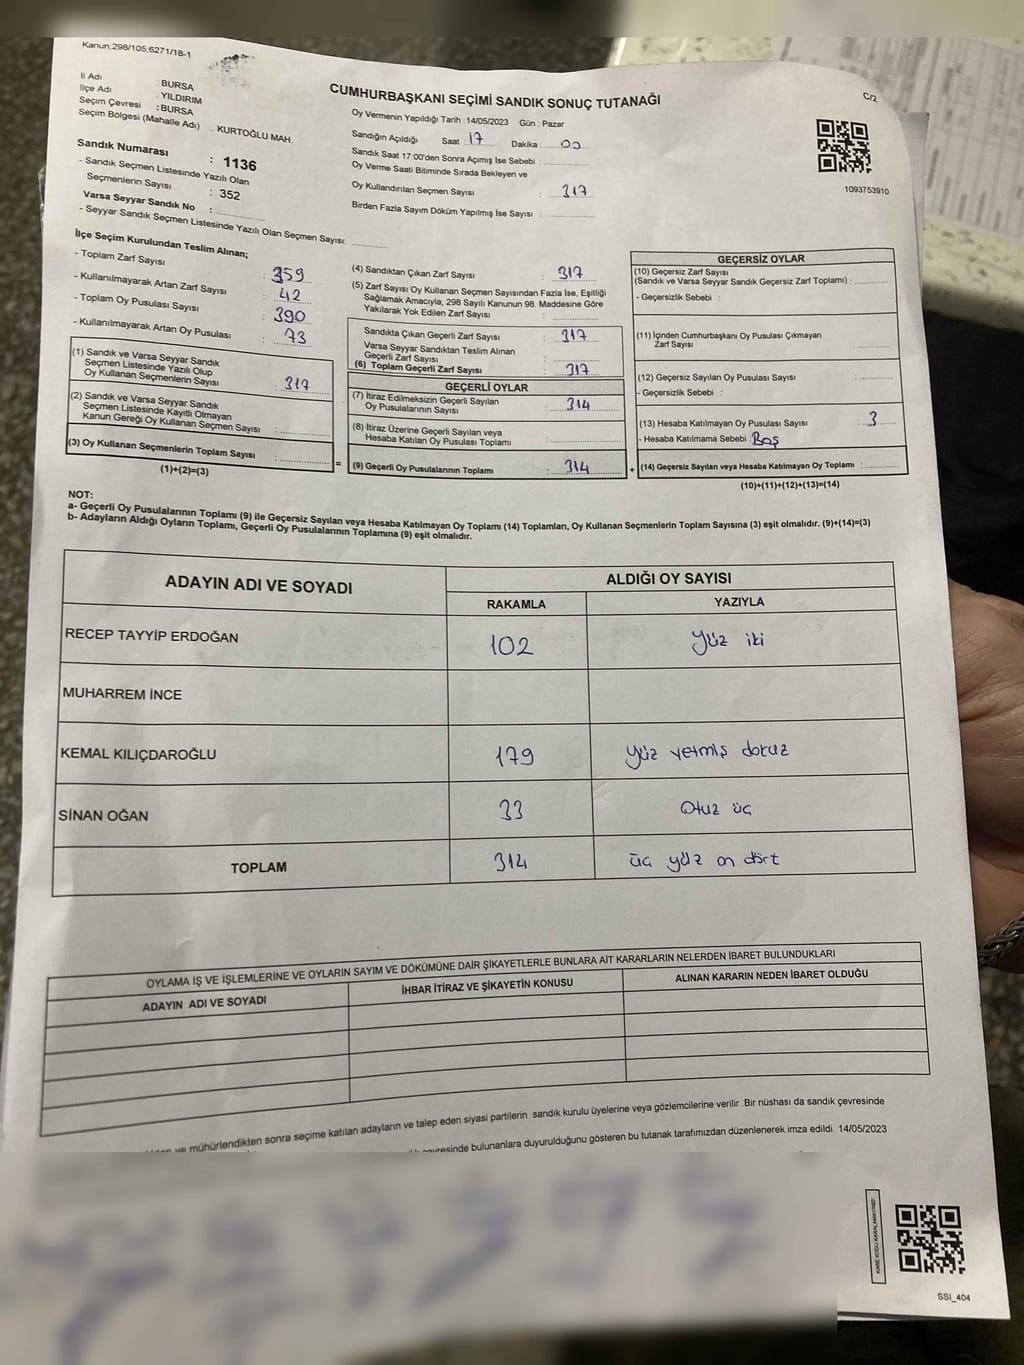 Kanun;298/105;6271/18-1
C/2
CUMHURBAŞKANI SEÇİMİ SANDIK SONUÇ TUTANAĞI
İl Adı : BURSA
İlçe Adı : YILDIRIM
Seçim Çevresi : BURSA
Seçim Bölgesi (Mahalle Adı) : KURTOĞLU MAH.
Sandık Numarası : 1136
- Sandık Seçmen Listesinde Yazılı Olan
Seçmenlerin Sayısı : 352
Varsa Seyyar Sandık No :
- Seyyar Sandık Seçmen Listesinde Yazılı Olan Seçmen Sayısı:
Oy Vermenin Yapıldığı Tarih :14/05/2023 Gün : Pazar
Sandığın Açıldığı Saat : 17 Dakika : 00
Sandık Saat 17:00'den Sonra Açımış İse Sebebi :
Oy Verme Saati Bitiminde Sırada Bekleyen ve
Oy Kullandırılan Seçmen Sayısı : 317
Birden Fazla Sayım Döküm Yapılmış İse Sayısı :
1093753910
İlçe Seçim Kurulundan Teslim Alınan;
- Toplam Zarf Sayısı : 359
- Kullanılmayarak Artan Zarf Sayısı : 42
- Toplam Oy Pusulası Sayısı : 390
- Kullanılmayarak Artan Oy Pusulası : 73
(1) Sandık ve Varsa Seyyar Sandık
Seçmen Listesinde Yazılı Olup
Oy Kullanan Seçmenlerin Sayısı : 317
(2) Sandık ve Varsa Seyyar Sandık
Seçmen Listesinde Kayıtlı Olmayan
Kanun Gereği Oy Kullanan Seçmen Sayısı :
(3) Oy Kullanan Seçmenlerin Toplam Sayısı :
(1)+(2)=(3)
(4) Sandıktan Çıkan Zarf Sayısı : 317
(5) Zarf Sayısı Oy Kullanan Seçmen Sayısından Fazla İse, Eşitliği
Sağlamak Amacıyla; 298 Sayılı Kanunun 98. Maddesine Göre
Yakılarak Yok Edilen Zarf Sayısı :
Sandıkta Çıkan Geçerli Zarf Sayısı : 317
Varsa Seyyar Sandıktan Teslim Alınan
Geçerli Zarf Sayısı :
(6) Toplam Geçerli Zarf Sayısı : 317
GEÇERLİ OYLAR
(7) İtiraz Edilmeksizin Geçerli Sayılan
Oy Pusulalarının Sayısı : 314
(8) İtiraz Üzerine Geçerli Sayılan veya
Hesaba Katılan Oy Pusulası Toplamı :
=
(9) Geçerli Oy Pusulalarının Toplamı : 314
GEÇERSİZ OYLAR
(10) Geçersiz Zarf Sayısı
(Sandık ve Varsa Seyyar Sandık Geçersiz Zarf Toplamı) :
- Geçersizlik Sebebi :
(11) İçinden Cumhurbaşkanı Oy Pusulası Çıkmayan
Zarf Sayısı :
(12) Geçersiz Sayılan Oy Pusulası Sayısı :
- Geçersizlik Sebebi :
(13) Hesaba Katılmayan Oy Pusulası Sayısı : 3
- Hesaba Katılmama Sebebi : Boş
+
(14) Geçersiz Sayılan veya Hesaba Katılmayan Oy Toplamı :
(10)+(11)+(12)+(13)=(14)
NOT:
a- Geçerli Oy Pusulalarının Toplamı (9) ile Geçersiz Sayılan veya Hesaba Katılmayan Oy Toplamı (14) Toplamları, Oy Kullanan Seçmenlerin Toplam Sayısına (3) eşit olmalıdır. (9)+(14)=(3)
b- Adayların Aldığı Oyların Toplamı, Geçerli Oy Pusulalarının Toplamına (9) eşit olmalıdır.
ADAYIN ADI VE SOYADI
ALDIĞI OY SAYISI
RAKAMLA YAZIYLA
RECEP TAYYİP ERDOĞAN 102 Yüz iki
MUHARREM İNCE
KEMAL KILIÇDAROĞLU 179 Yüz yetmiş dokuz
SİNAN OĞAN 33 Otuz üç
TOPLAM 314 üç yüz on dört
OYLAMA İŞ VE İŞLEMLERİNE VE OYLARIN SAYIM VE DÖKÜMÜNE DAİR ŞİKAYETLERLE BUNLARA AİT KARARLARIN NELERDEN İBARET BULUNDUKLARI
ADAYIN ADI VE SOYADI İHBAR İTİRAZ VE ŞİKAYETİN KONUSU ALINAN KARARIN NEDEN İBARET OLDUĞU
ve mühürlendikten sonra seçime katılan adayların ve talep eden siyasi partilerin sandık kurulu üyelerine veya gözlemcilerine verilir .Bir nüshası da sandık çevresinde
bulunanlara duyurulduğunu gösteren bu tutanak tarafımızdan düzenlenerek imza edildi. 14/05/2023
SSI_404